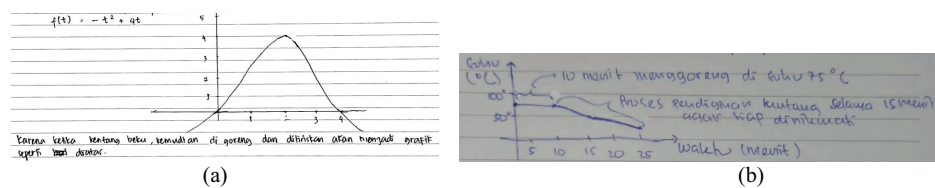 f(t) = -t² + 4t
5
4
3
2
1
1 2 3 4
Karena ketika kentang beku, kemudian di goreng dan ditiriskan akan menjadi grafik
seperti diatas.
(a)
Suhu
(°C)
10 menit menggoreng di suhu 75°C
100°
Proses pendinginan kentang selama 15 menit
agar siap dinikmati
50°
5 10 15 20 25 Waktu (menit)
(b)